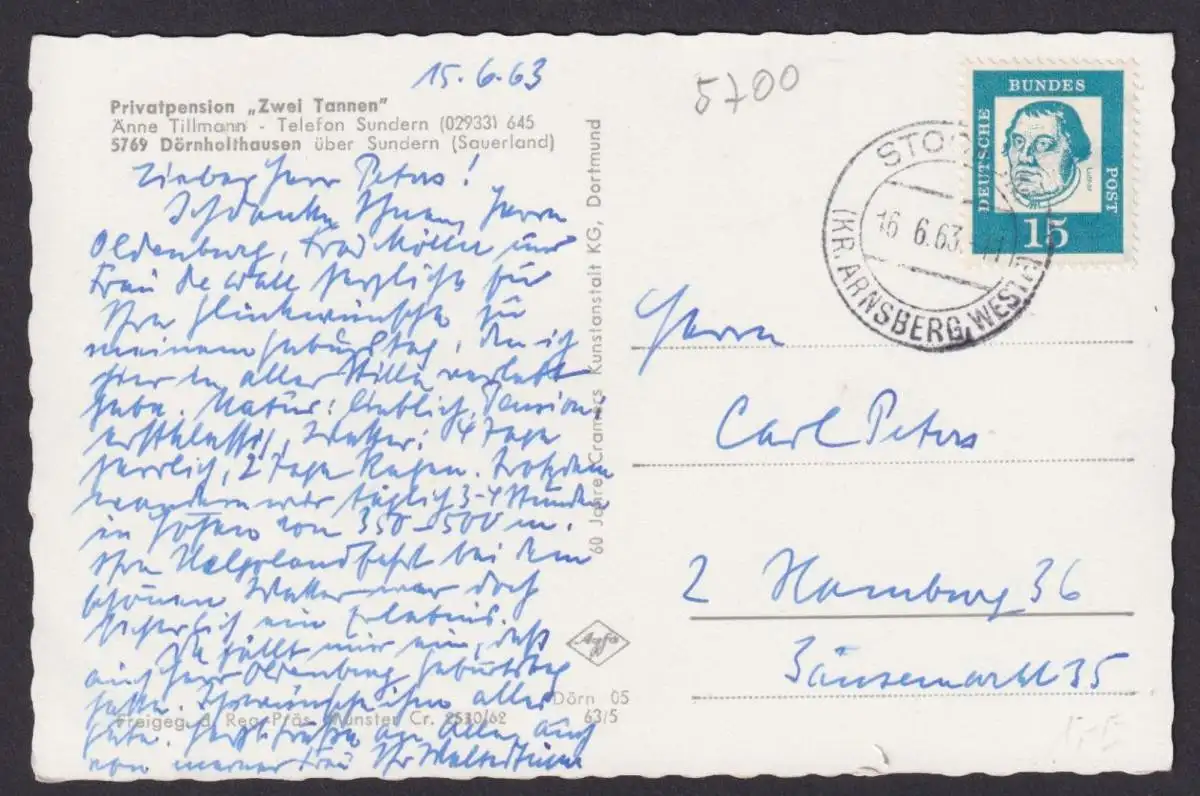 15.6.63
5700
Privatpension „Zwei Tannen"
Änne Tillmann - Telefon Sundern (02933) 645
5769 Dörnholthausen über Sundern (Sauerland)
Lieber Herr Peters!
Ich danke Ihnen, Herrn
Oldenburg, Frau Möller und
Frau de Wall herzlichst für
Ihre Glückwünsche zu
meinem Geburtstag, den ich
hier in aller Stille verlebt
habe. Natur: lieblich, Pension:
erstklassig, Wetter: 4 Tage
herrlich, 2 Tage Regen. Trotzdem
wandern wir täglich 3-4 Stunden
in Höhen von 350-500 m.
Ihre Helgolandfahrt bei dem
schönen Wetter war doch
sicherlich ein Erlebnis.
Da fällt mir ein, daß
auch Herr Oldenburg Geburtstag
hatte. Ich wünsche ihm alles
Gute. Herzl. Grüße an Alle, auch
von meiner Frau Ihr Walter
Freigeg. d. Reg.-Präs. Münster Cr. 2530/62
Dörn 05
63/5
Agfa
60 Jahre Cramers Kunstanstalt KG, Dortmund
DEUTSCHE
BUNDES
POST
Luther
15
STO
16.6.63
(KR. ARNSBERG, WESTF.)
Herrn
Carl Peters
2 Hamburg 36
Gänsemarkt 35